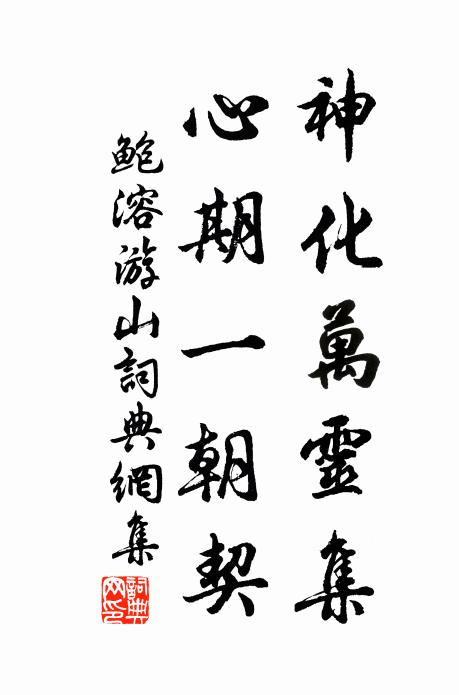 神化萬靈集
心期一朝契
鮑溶游山詞典網集
詞典網印